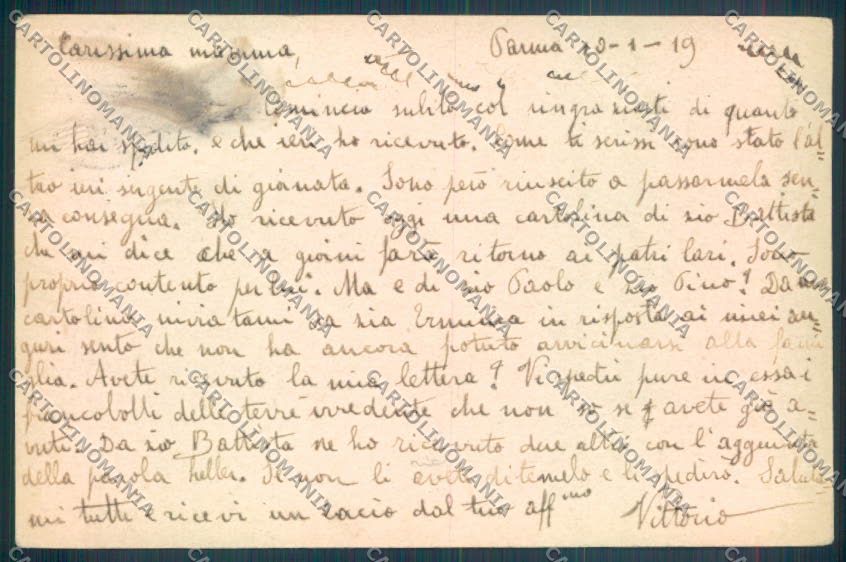 Carissima mamma, Parma 10-1-19
Comincio subito col ringraziarti di quanto
mi hai spedito. e che ieri ho ricevuto. Come ti scrissi sono stato l'al=
tro ieri sergente di giornata. Sono però riuscito a passarmela sen=
za consegna. Ho ricevuto oggi una cartolina di zio Battista
che mi dice che a giorni farà ritorno ai patri lari. Sono
proprio contento per lui. Ma e di zio Paolo e zio Pino? Da una
cartolina inviatami da zia Erminia in risposta ai miei au=
guri sento che non ha ancora potuto avvicinarsi alla fami
glia. Avete ricevuto la mia lettera? Vi spedii pure in essa i
francobolli delle terre irredente che non so se avete già a=
vuti. Da zio Battista ne ho ricevuto due altri con l'aggiunta
della parola heller. Se non li avete ditemelo e li spedirò. Saluta
mi tutti e ricevi un bacio dal tuo aff mo Vittorio
CARTOLINOMANIA